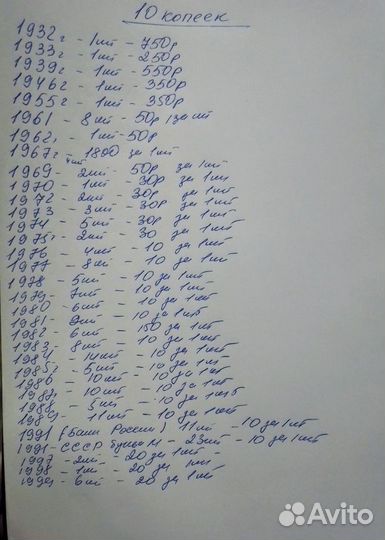 10 копеек
1932г - 1шт - 750р
1933г - 1шт - 250р
1939г - 1шт - 550р
1946г - 1шт - 350р
1955г - 1шт - 350р
1961 - 8шт - 50р за шт
1962г - 1шт - 50р
1967г - 1800 за 1шт
1969 - 2шт - 50р за 1шт
1970 - 1шт - 30р за 1шт
1972 - 2шт - 30р за 1шт
1973 - 3шт - 30р за 1шт
1974 - 5шт - 30р за 1шт
1975г - 2шт - 30 за 1шт
1976 - 4шт - 10 за 1шт
1977 - 8шт - 10 за 1шт
1978 - 5шт - 10 за 1шт
1979 - 7шт - 10 за 1шт
1980 - 6шт - 10 за 1шт
1981 - 9шт - 10 за 1шт
1982 - 6шт - 150 за 1шт
1983 - 8шт - 10 за 1шт
1984 - 14шт - 10 за 1шт
1985г - 5шт - 10 за 1шт
1986 - 10шт - 10 за 1шт
1987г - 10шт - 10 за 1шт
1988 - 5шт - 10 за 1шт
1989 - 11шт - 10 за 1шт
1991 (Банк России) 11шт - 10 за 1шт
1991 - СССР буква М - 23шт - 10 за 1шт
1997 - 2шт - 20 за 1шт
1998 - 1шт - 20 за 1шт
1999 - 6шт - 20 за 1шт
Avito